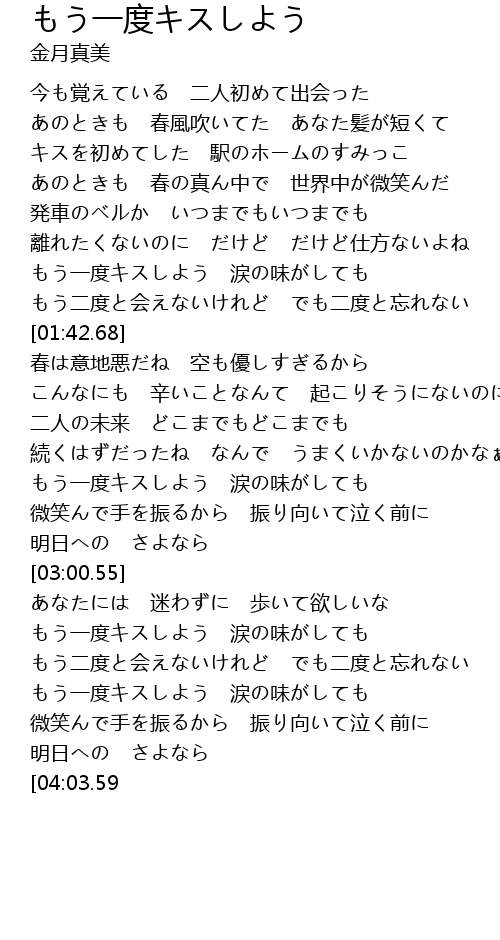 もう一度キスしよう
金月真美
今も覚えている　二人初めて出会った
あのときも　春風吹いてた　あなた髪が短くて
キスを初めてした　駅のホームのすみっこ
あのときも　春の真ん中で　世界中が微笑んだ
発車のベルか　いつまでもいつまでも
離れたくないのに　だけど　だけど仕方ないよね
もう一度キスしよう　涙の味がしても
もう二度と会えないけれど　でも二度と忘れない
[01:42.68]
春は意地悪だね　空も優しすぎるから
こんなにも　辛いことなんて　起こりそうにないのに
二人の未来　どこまでもどこまでも
続くはずだったね　なんで　うまくいかないのかなぁ
もう一度キスしよう　涙の味がしても
微笑んで手を振るから　振り向いて泣く前に
明日への　さよなら
[03:00.55]
あなたには　迷わずに　歩いて欲しいな
もう一度キスしよう　涙の味がしても
もう二度と会えないけれど　でも二度と忘れない
もう一度キスしよう　涙の味がしても
微笑んで手を振るから　振り向いて泣く前に
明日への　さよなら
[04:03.59